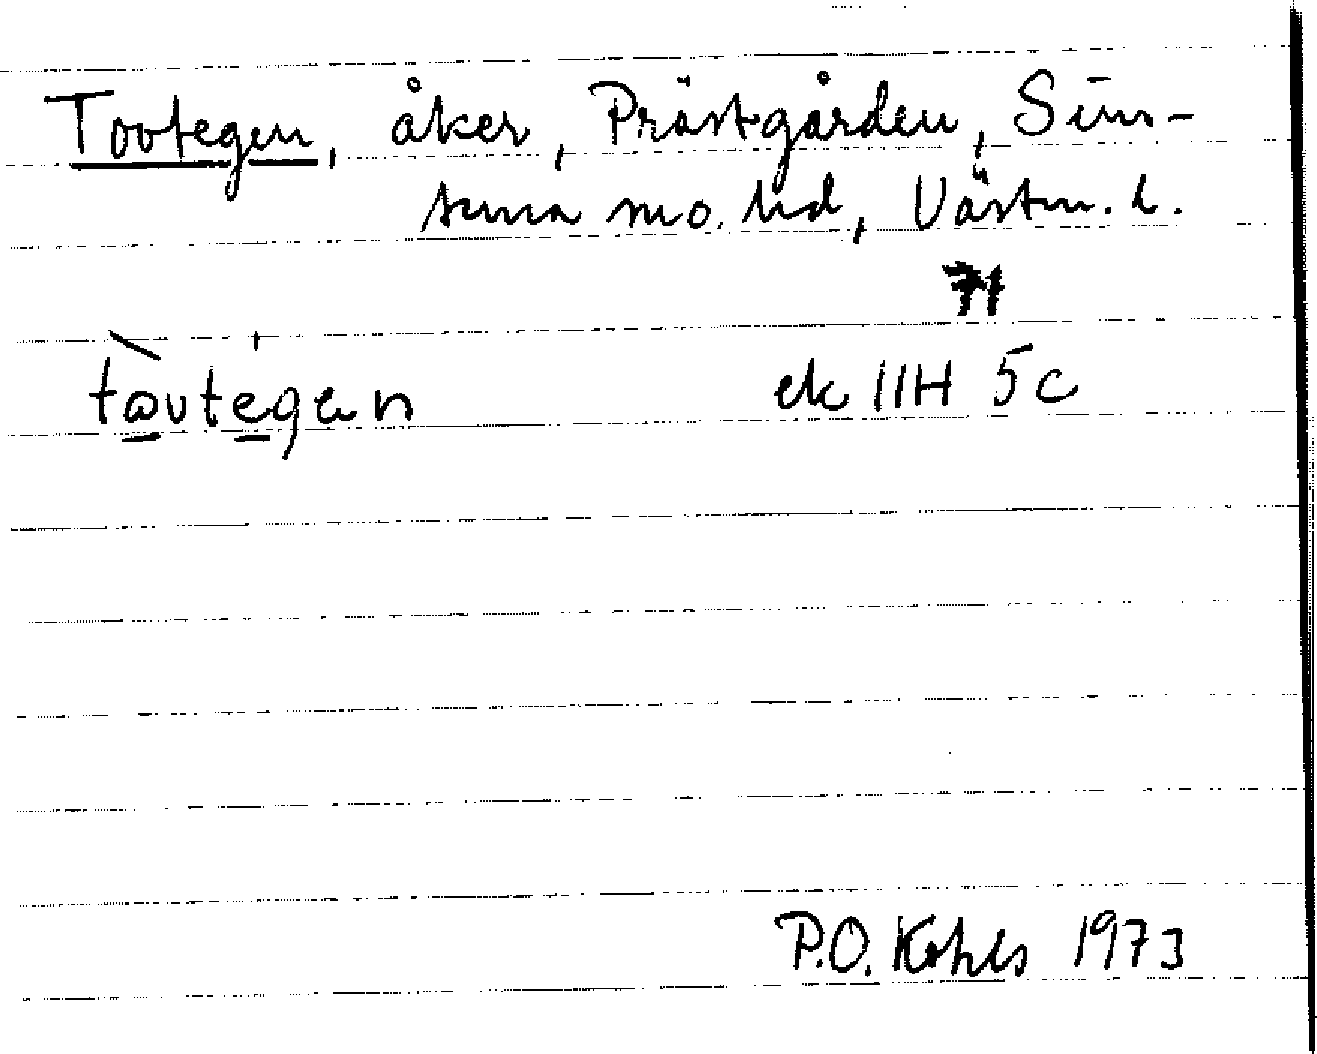 Tovtegen, åker, Prästgården, Sim-
tuna sn o. hd, Västm. l.
71
tovtegen ek 11H 5c
P.O. Kohls 1973